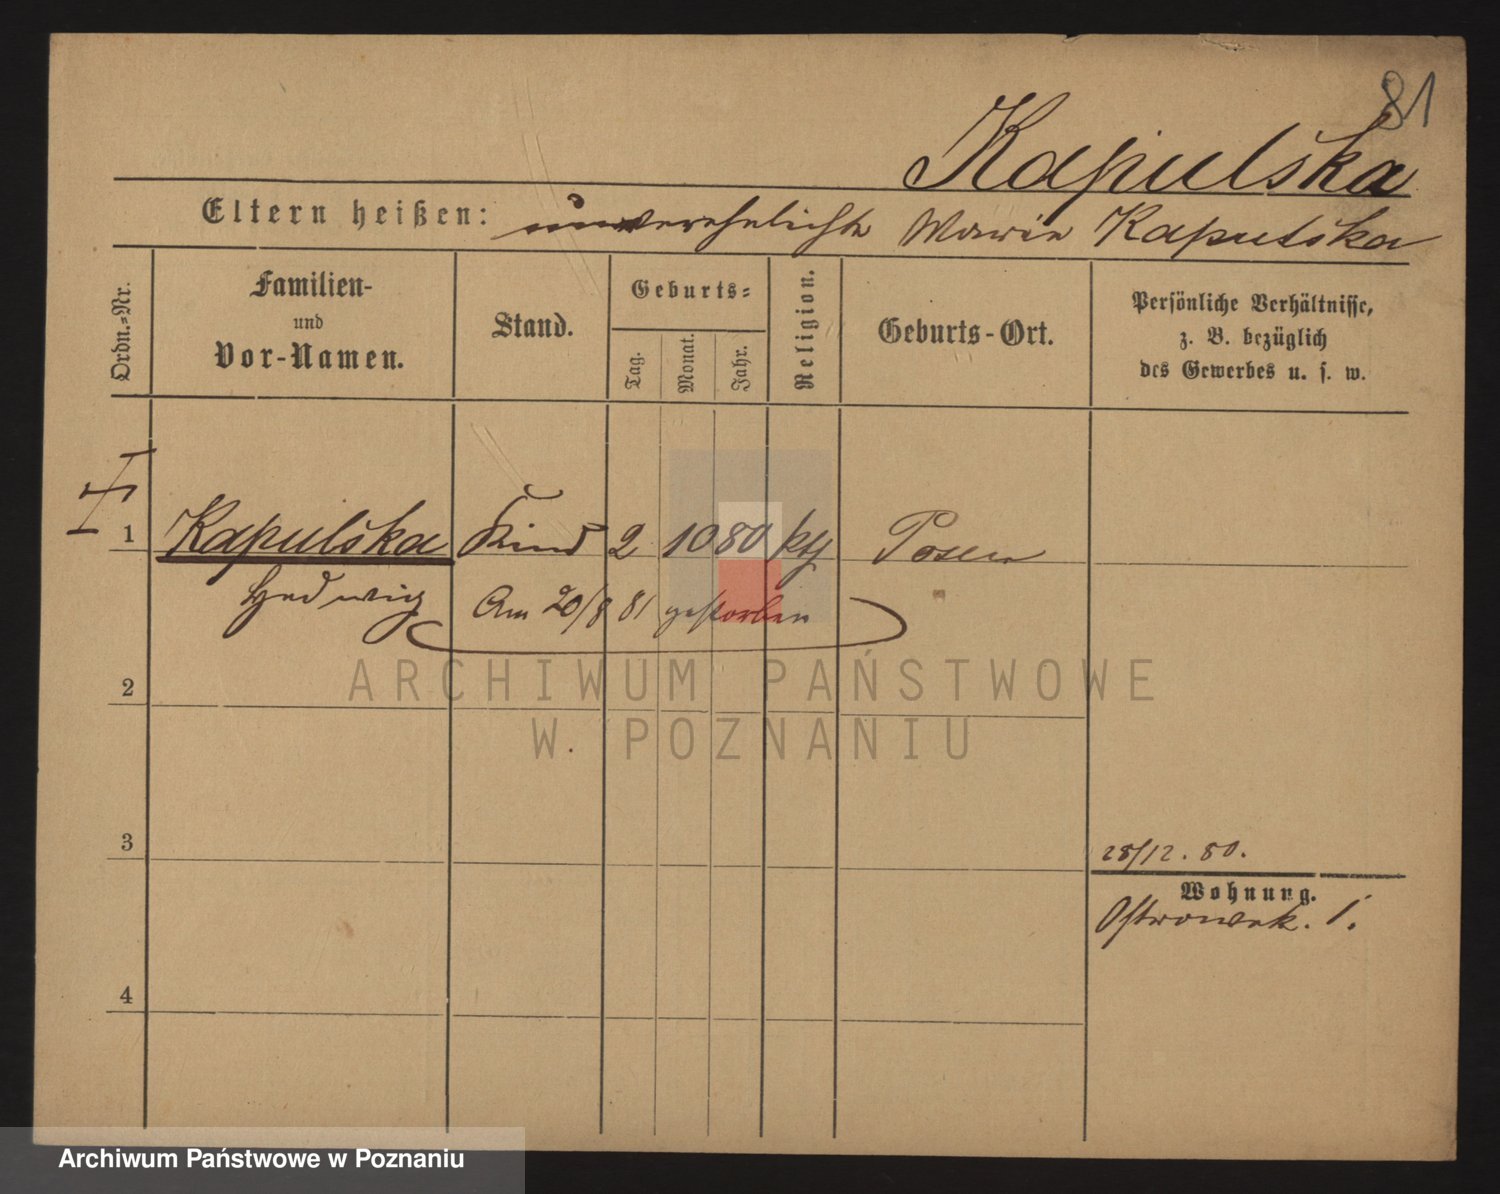 81
Kapulska
Eltern heißen: unverehelichte Marie Kapulska
Ordn.-Nr.
Familien-
und
Vor-Namen.
Stand.
Geburts-
Tag.
Monat.
Jahr.
Religion.
Geburts-Ort.
Persönliche Verhältnisse,
z. B. bezüglich
des Gewerbes u. s. w.
1 Kapulska Kind 2 10 80 kth Posen
Hedwig Am 20/8 81 gestorben
ARCHIWUM PAŃSTWOWE
W POZNANIU
2
3
28/12. 80.
Wohnung.
Ostrowek. 1.
4
Archiwum Państwowe w Poznaniu